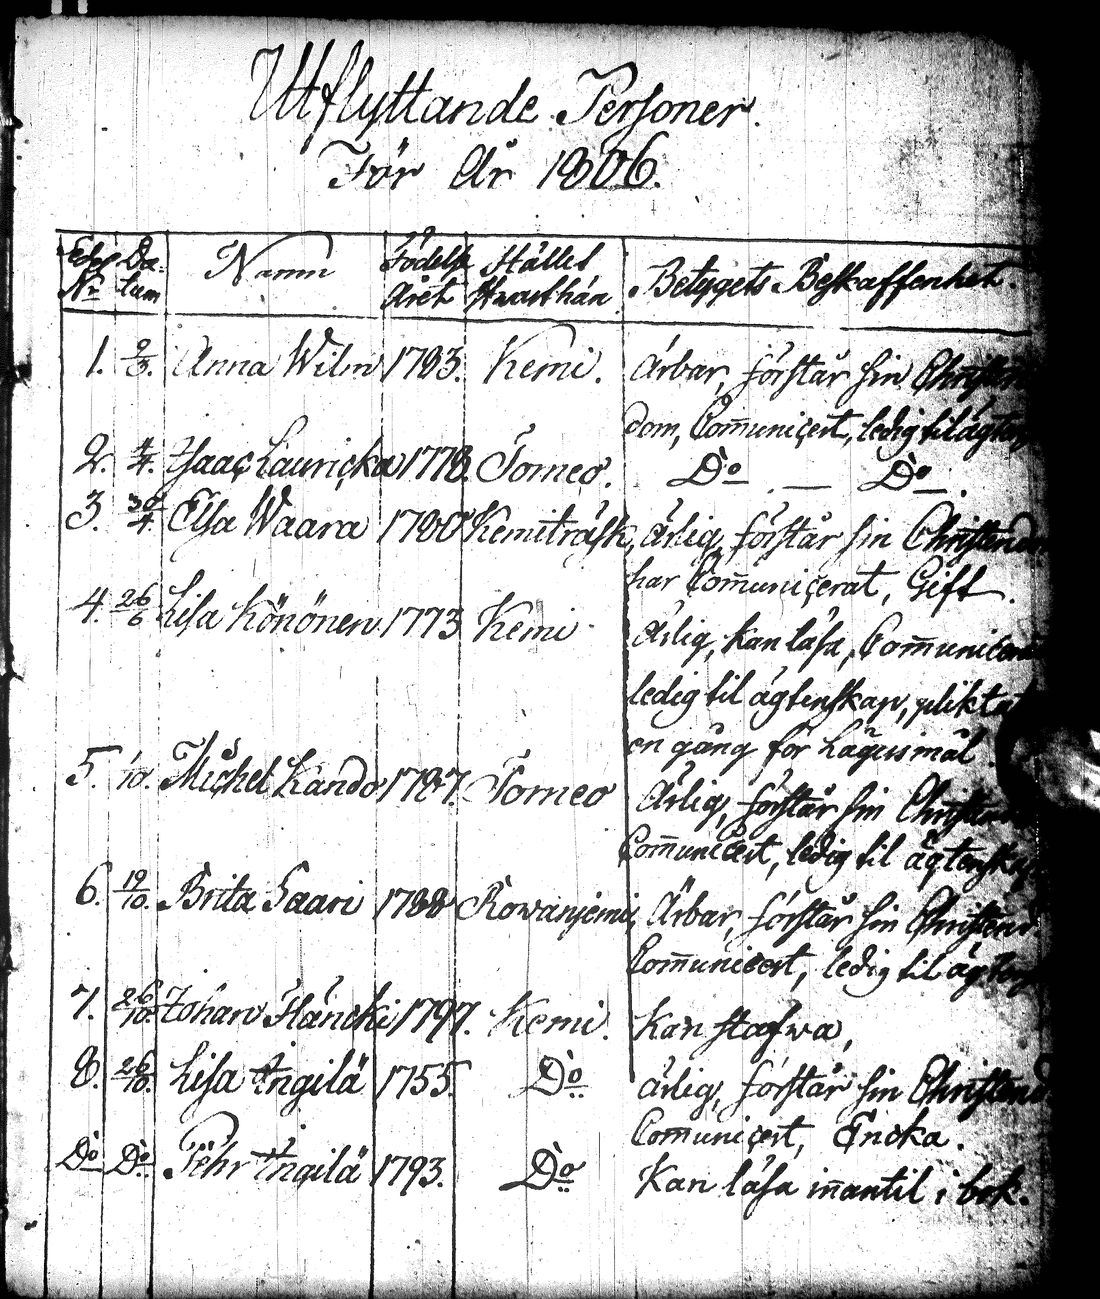 Utflyttande Personer.
För År 1806.
Efter Da- Namn Födelse Stället Betygets Beskaffenhet.
No tum Året Hwarthän
1. 2/3. Anna Wilm 1783. Kemi. Ärbar, förstår sin Christen
dom, Com̄unicert, ledig til ägten
2. 4/4. Isaac Lauricka 1778. Torneo. Do — Do.
3. 30/4. Elsa Waara 1780 Kemiträsk, Ärlig, förstår sin Christend
har Com̄unicerat, Gift.
4. 26/6 Lisa Könönen 1773 Kemi Ärlig, kan läsa, Com̄unicerat
ledig til ägtenskap, pliktat
en gång för Lägersmål.
5. /10. Michel Lando 1787. Torneo Ärlig, förstår sin Christen
Com̄unicert, ledig til ägtenskap
6. 19/10. Brita Saari 1788 Rowanjemi, Ärbar, förstår sin Christend
Com̄unicert, ledig til ägten
7. 26/10. Johan Häncki 1797. Kemi. Kan stafwa,
8. 26/10. Lisa Ängilä 1755. Do ärlig, förstår sin Christend
Com̄unicert, Encka.
Do Do Pehr Ängilä 1793. Do Kan läsa in̄antil i bok.